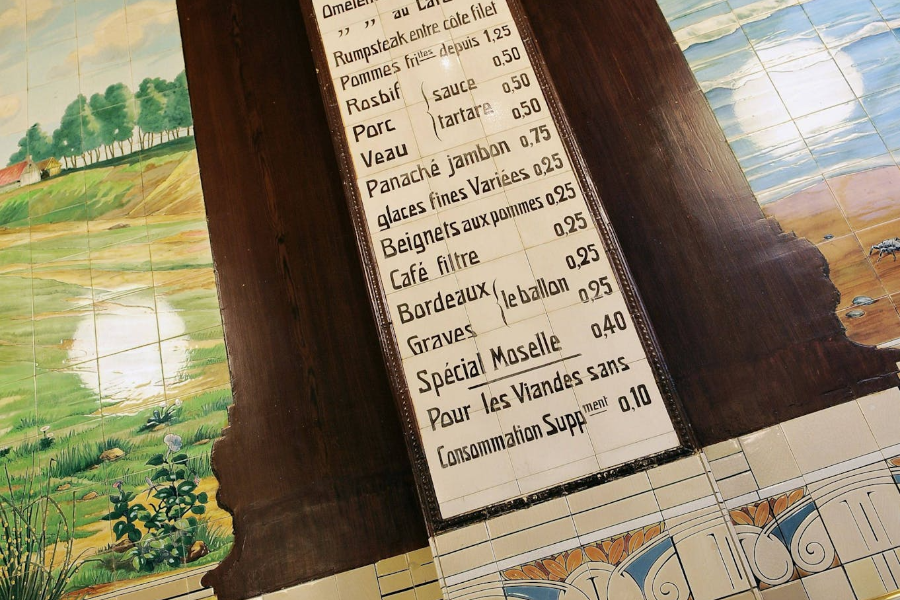 au
,, ,,
Rumpsteak entre côte filet
Pommes frites depuis 1,25
Rosbif sauce 0,50
Porc tartare 0,50
Veau 0,50
Panaché jambon 0,75
glaces fines Variées 0,25
Beignets aux pommes 0,25
Café filtre 0,25
Bordeaux le ballon 0,25
Graves 0,25
Spécial Moselle 0,40
Pour les Viandes sans
Consommation Suppment 0,10